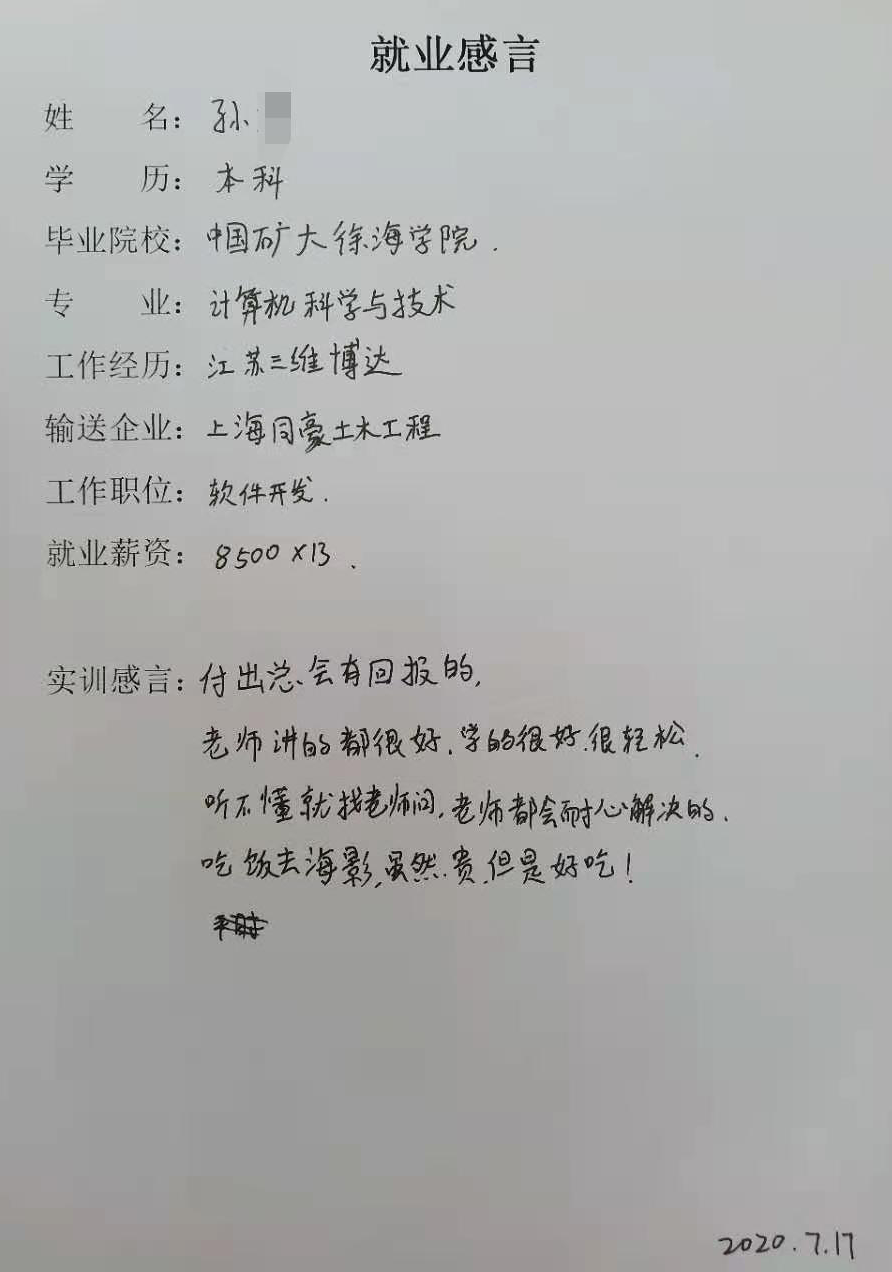 就业感言
姓 名：孙
学 历：本科
毕业院校：中国矿大徐海学院.
专 业：计算机科学与技术
工作经历：江苏三维博达
输送企业：上海同豪土木工程
工作职位：软件开发.
就业薪资：8500×13.
实训感言：付出总会有回报的,
老师讲的都很好,学的很好.很轻松.
听不懂就找老师问,老师都会耐心解决的.
吃饭去海影,虽然贵,但是好吃!
2020.7.17